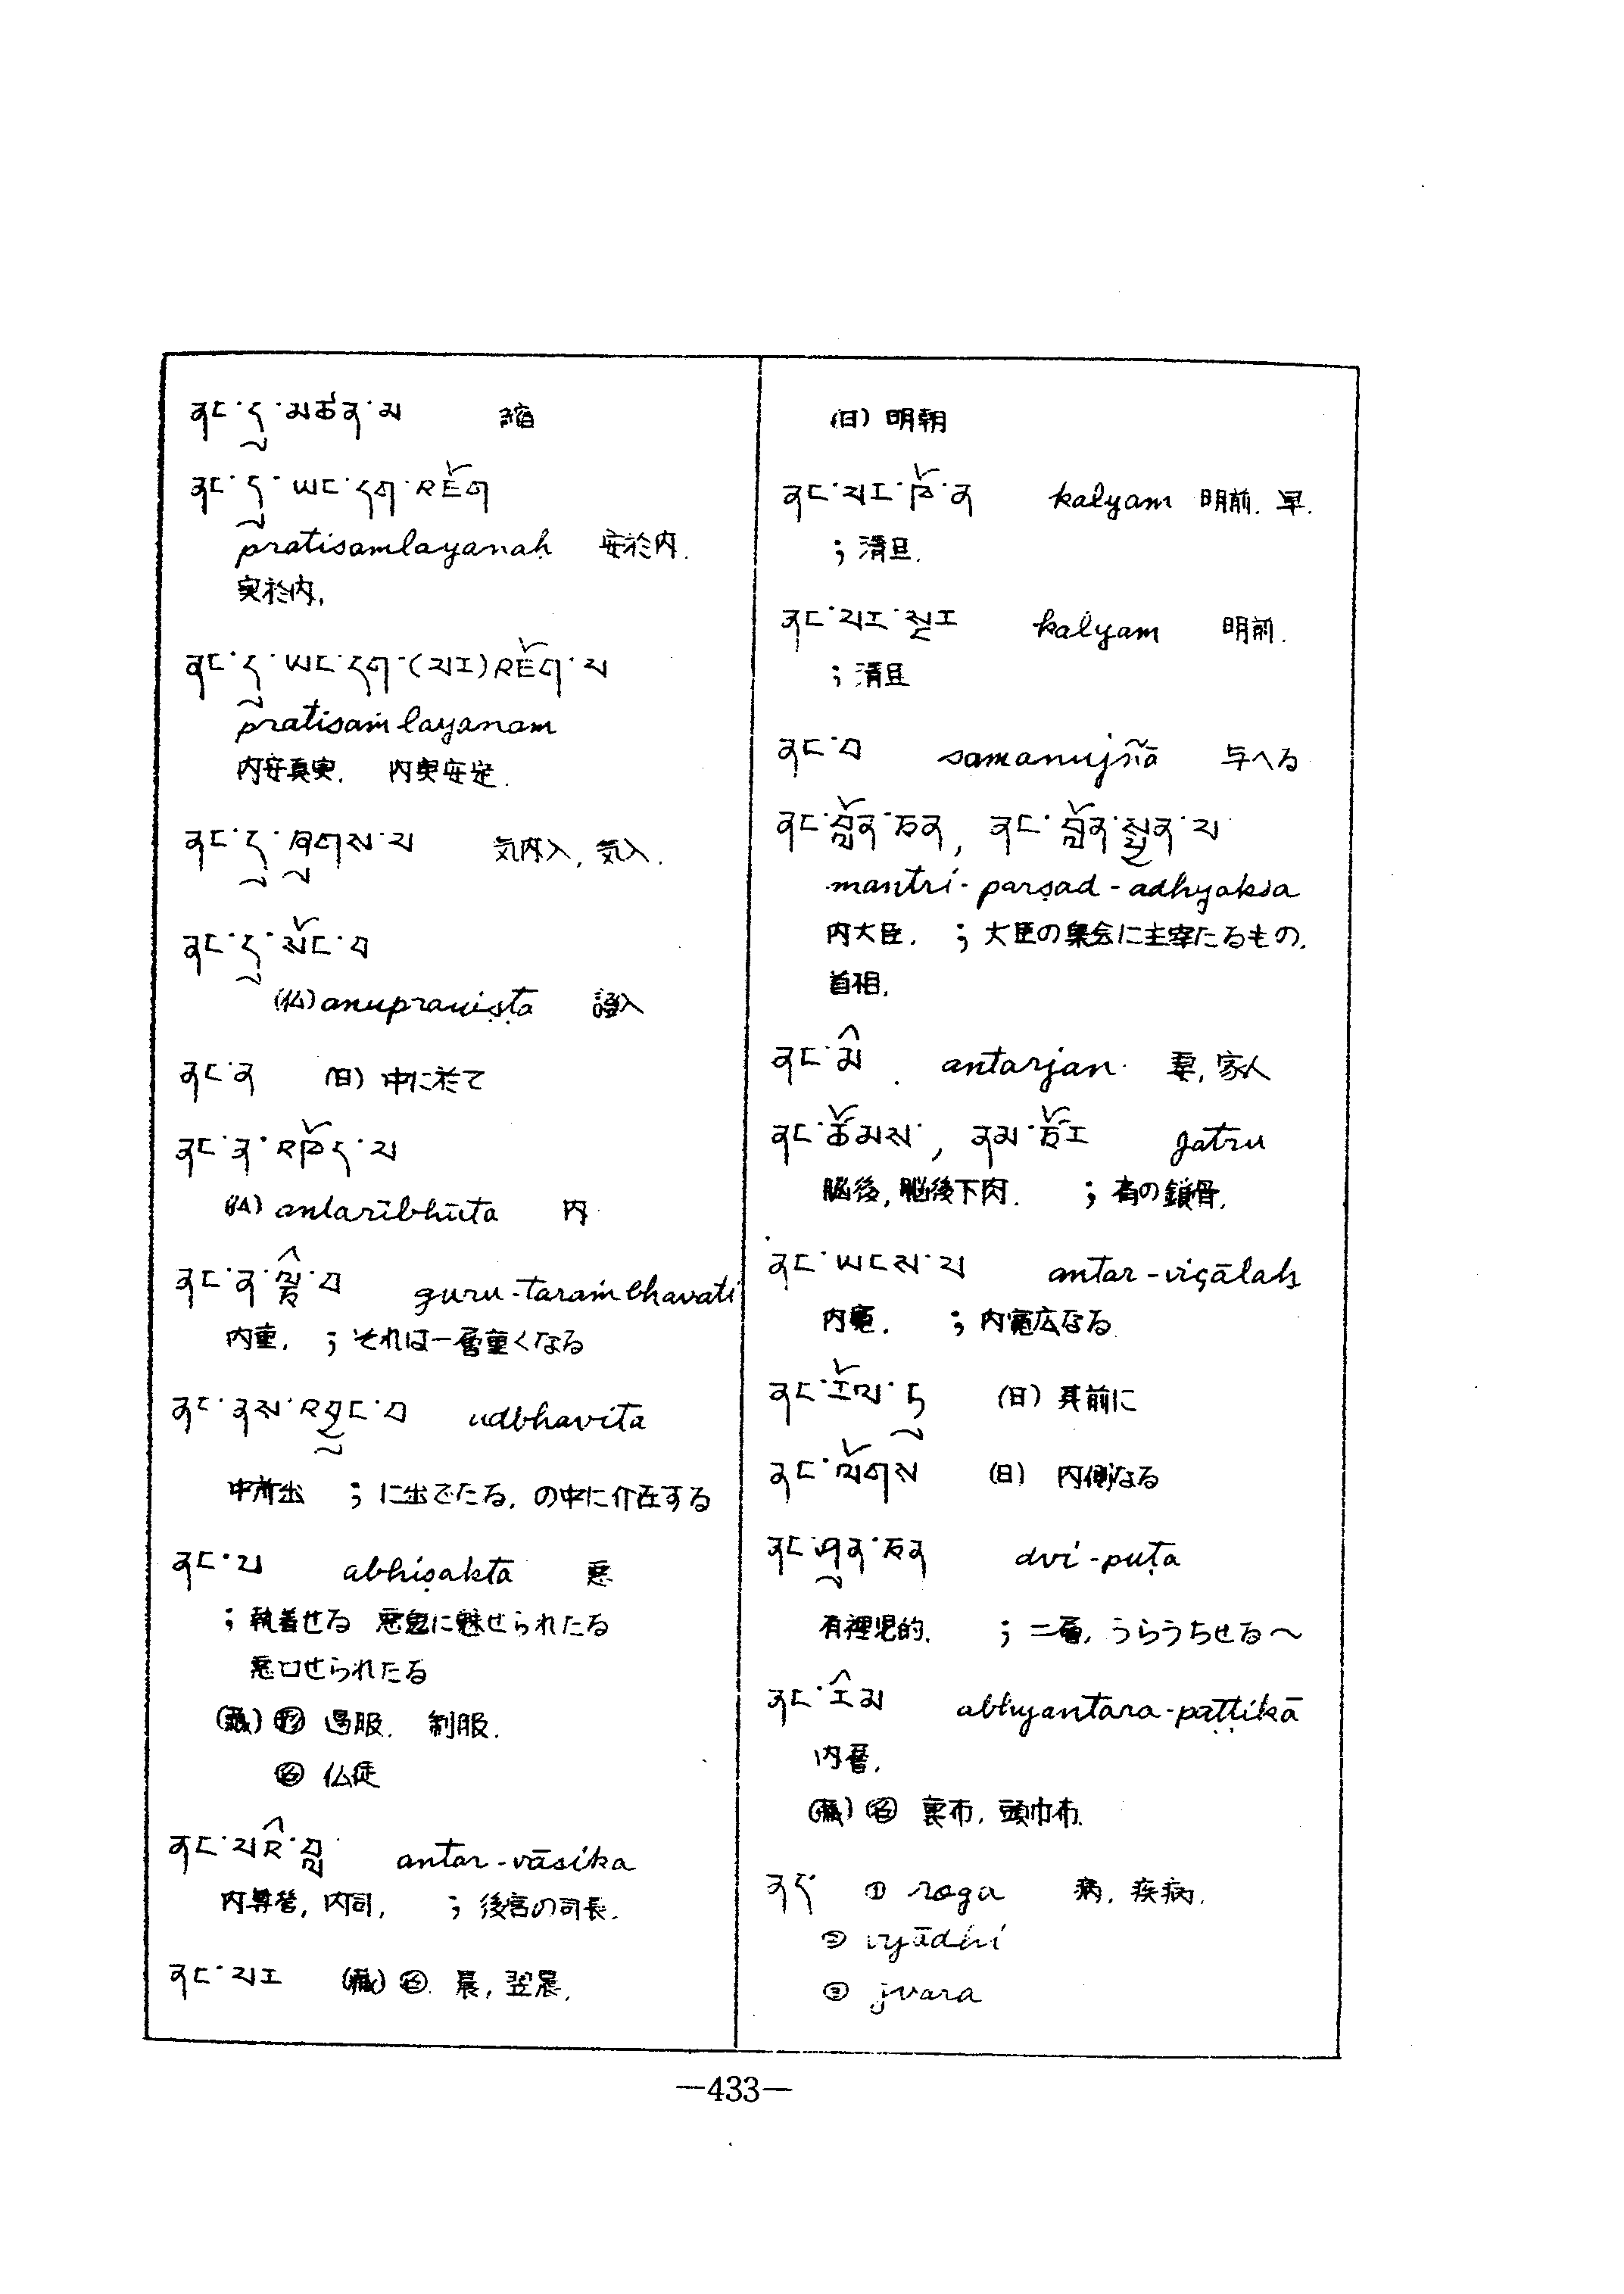 ནང་དུ་མཚན་མ 縮
ནང་དུ་ཡང་དག་འཇོག
pratisamlayanaḥ 安於内.
実於内.
ནང་དུ་ཡང་དག་(པར)འཇོག་པ
pratisaṁlayanam
内安真実. 内実安定.
ནང་དུ་ཞུགས་པ 気内入, 気入.
ནང་དུ་སོང་བ
(仏) anupraviṣṭa 證入
ནང་ན (日) 中に於て
ནང་ན་འཁོད་པ
(仏) antarībhūta 内
ནང་ན་ལྕི་བ guru-taraṁ bhavati
内重. ; それは一層重くなる
ནང་ནས་འབྱུང་བ udbhavita
中所出 ; に出でたる, の中に介在する
ནང་པ abhiṣakta 悪
; 執着せる 悪鬼に魅せられたる
悪口せられたる
(蔵) 形 過服. 制服.
名 仏徒
ནང་པའི་བླ antar-vāsika
内尊菅, 内司, ; 後宮の司長.
ནང་པར (蔵) 名. 晨, 翌晨.
(日) 明朝
ནང་པར་ཁོ་ན kalyam 明前. 早.
; 清旦.
ནང་པར་སྔར kalyam 明前.
; 清旦
ནང་བ samanujñā 与へる
ནང་བློན་ཅན, ནང་བློན་སྤྱན་པ
mantri-parṣad-adhyakṣa
内大臣. ; 大臣の集会に主宰たるもの.
首相.
ནང་མི antarjan 妻, 家人
ནང་ཚོམས, ནམ་ཚོར jatru
脳後, 脳後下肉. ; 肩の鎖骨.
ནང་ཡངས་པ antar-viçālaḥ
内寛. ; 内寛広なる
ནང་རོལ་ཏུ (日) 其前に
ནང་ལོགས (日) 内側なる
ནང་ཤུན་ཅན dvi-puṭa
有裡児的. ; 二層, うらうちせる〜
ནང་རིམ abhyantara-paṭṭikā
内層.
(蔵) 名 裏布, 頭巾布.
ནད ① roga 病, 疾病.
② vyādhi
③ jvara
—433—